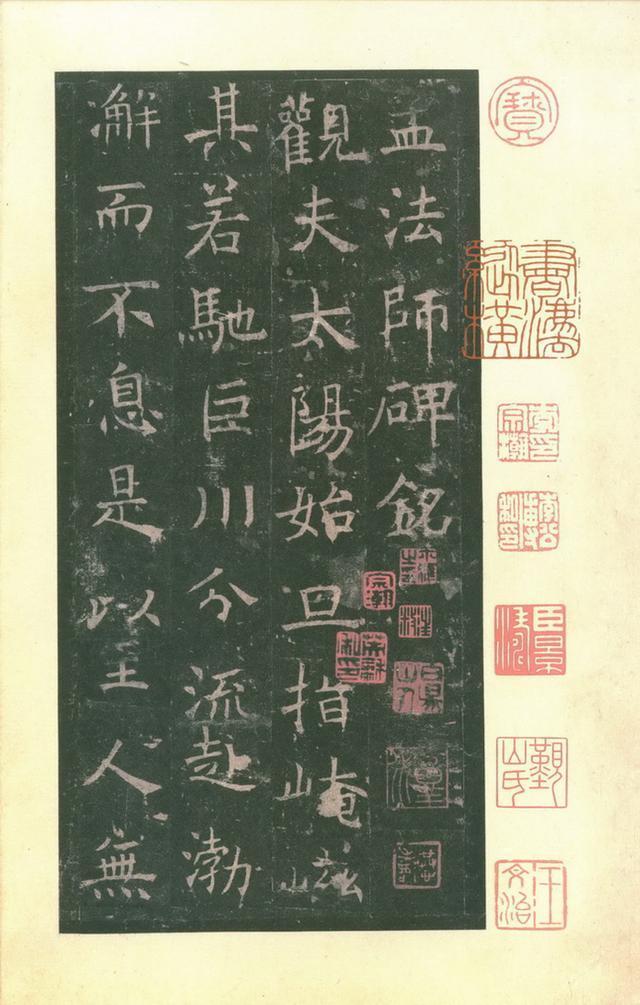 孟法師碑銘
觀夫太陽始旦指崦嵫
其若馳巨川分流赴渤
澥而不息是以至人無
寶
王文治
宗瀚